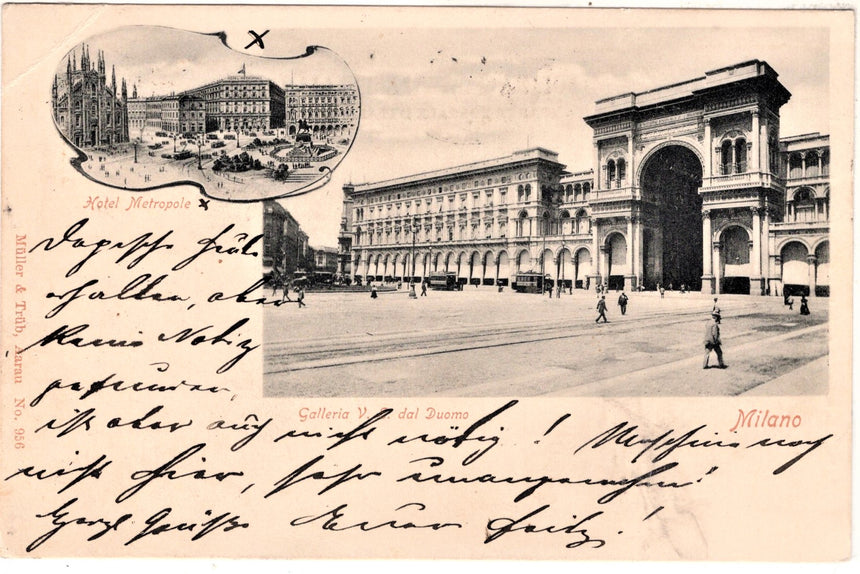 Hotel Metropole
erhalten, aber
keine Notiz
gefunden,
ist aber auch nicht nötig! Maschine noch
nicht hier, sehr unangenehm!
Herzl. Grüße Euer Fritz!
Galleria V. dal Duomo
Milano
Müller & Trüb, Aarau No. 956